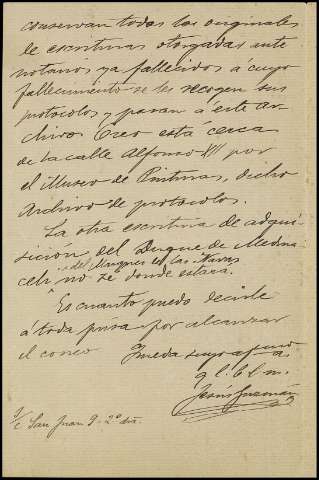 conservan todas las originales
de escrituras otorgadas ante
notarios ya fallecidos á cuyo
fallecimiento se les recogen sus
protocolos y pasan á este ar-
chivo. Creo está cerca
de la calle Alfonso XII por
el Museo de Pinturas, dicho
Archivo de protocolos.
La otra escritura de adqui-
sición del Duque de Medina
celi, no se donde estara.
Es cuanto puedo decirle
a toda prisa por alcanzar
el correo
Queda suyo afmo
a.
q l. b. l. m.
Jesús Guzmán
S/c San Juan 9-2º